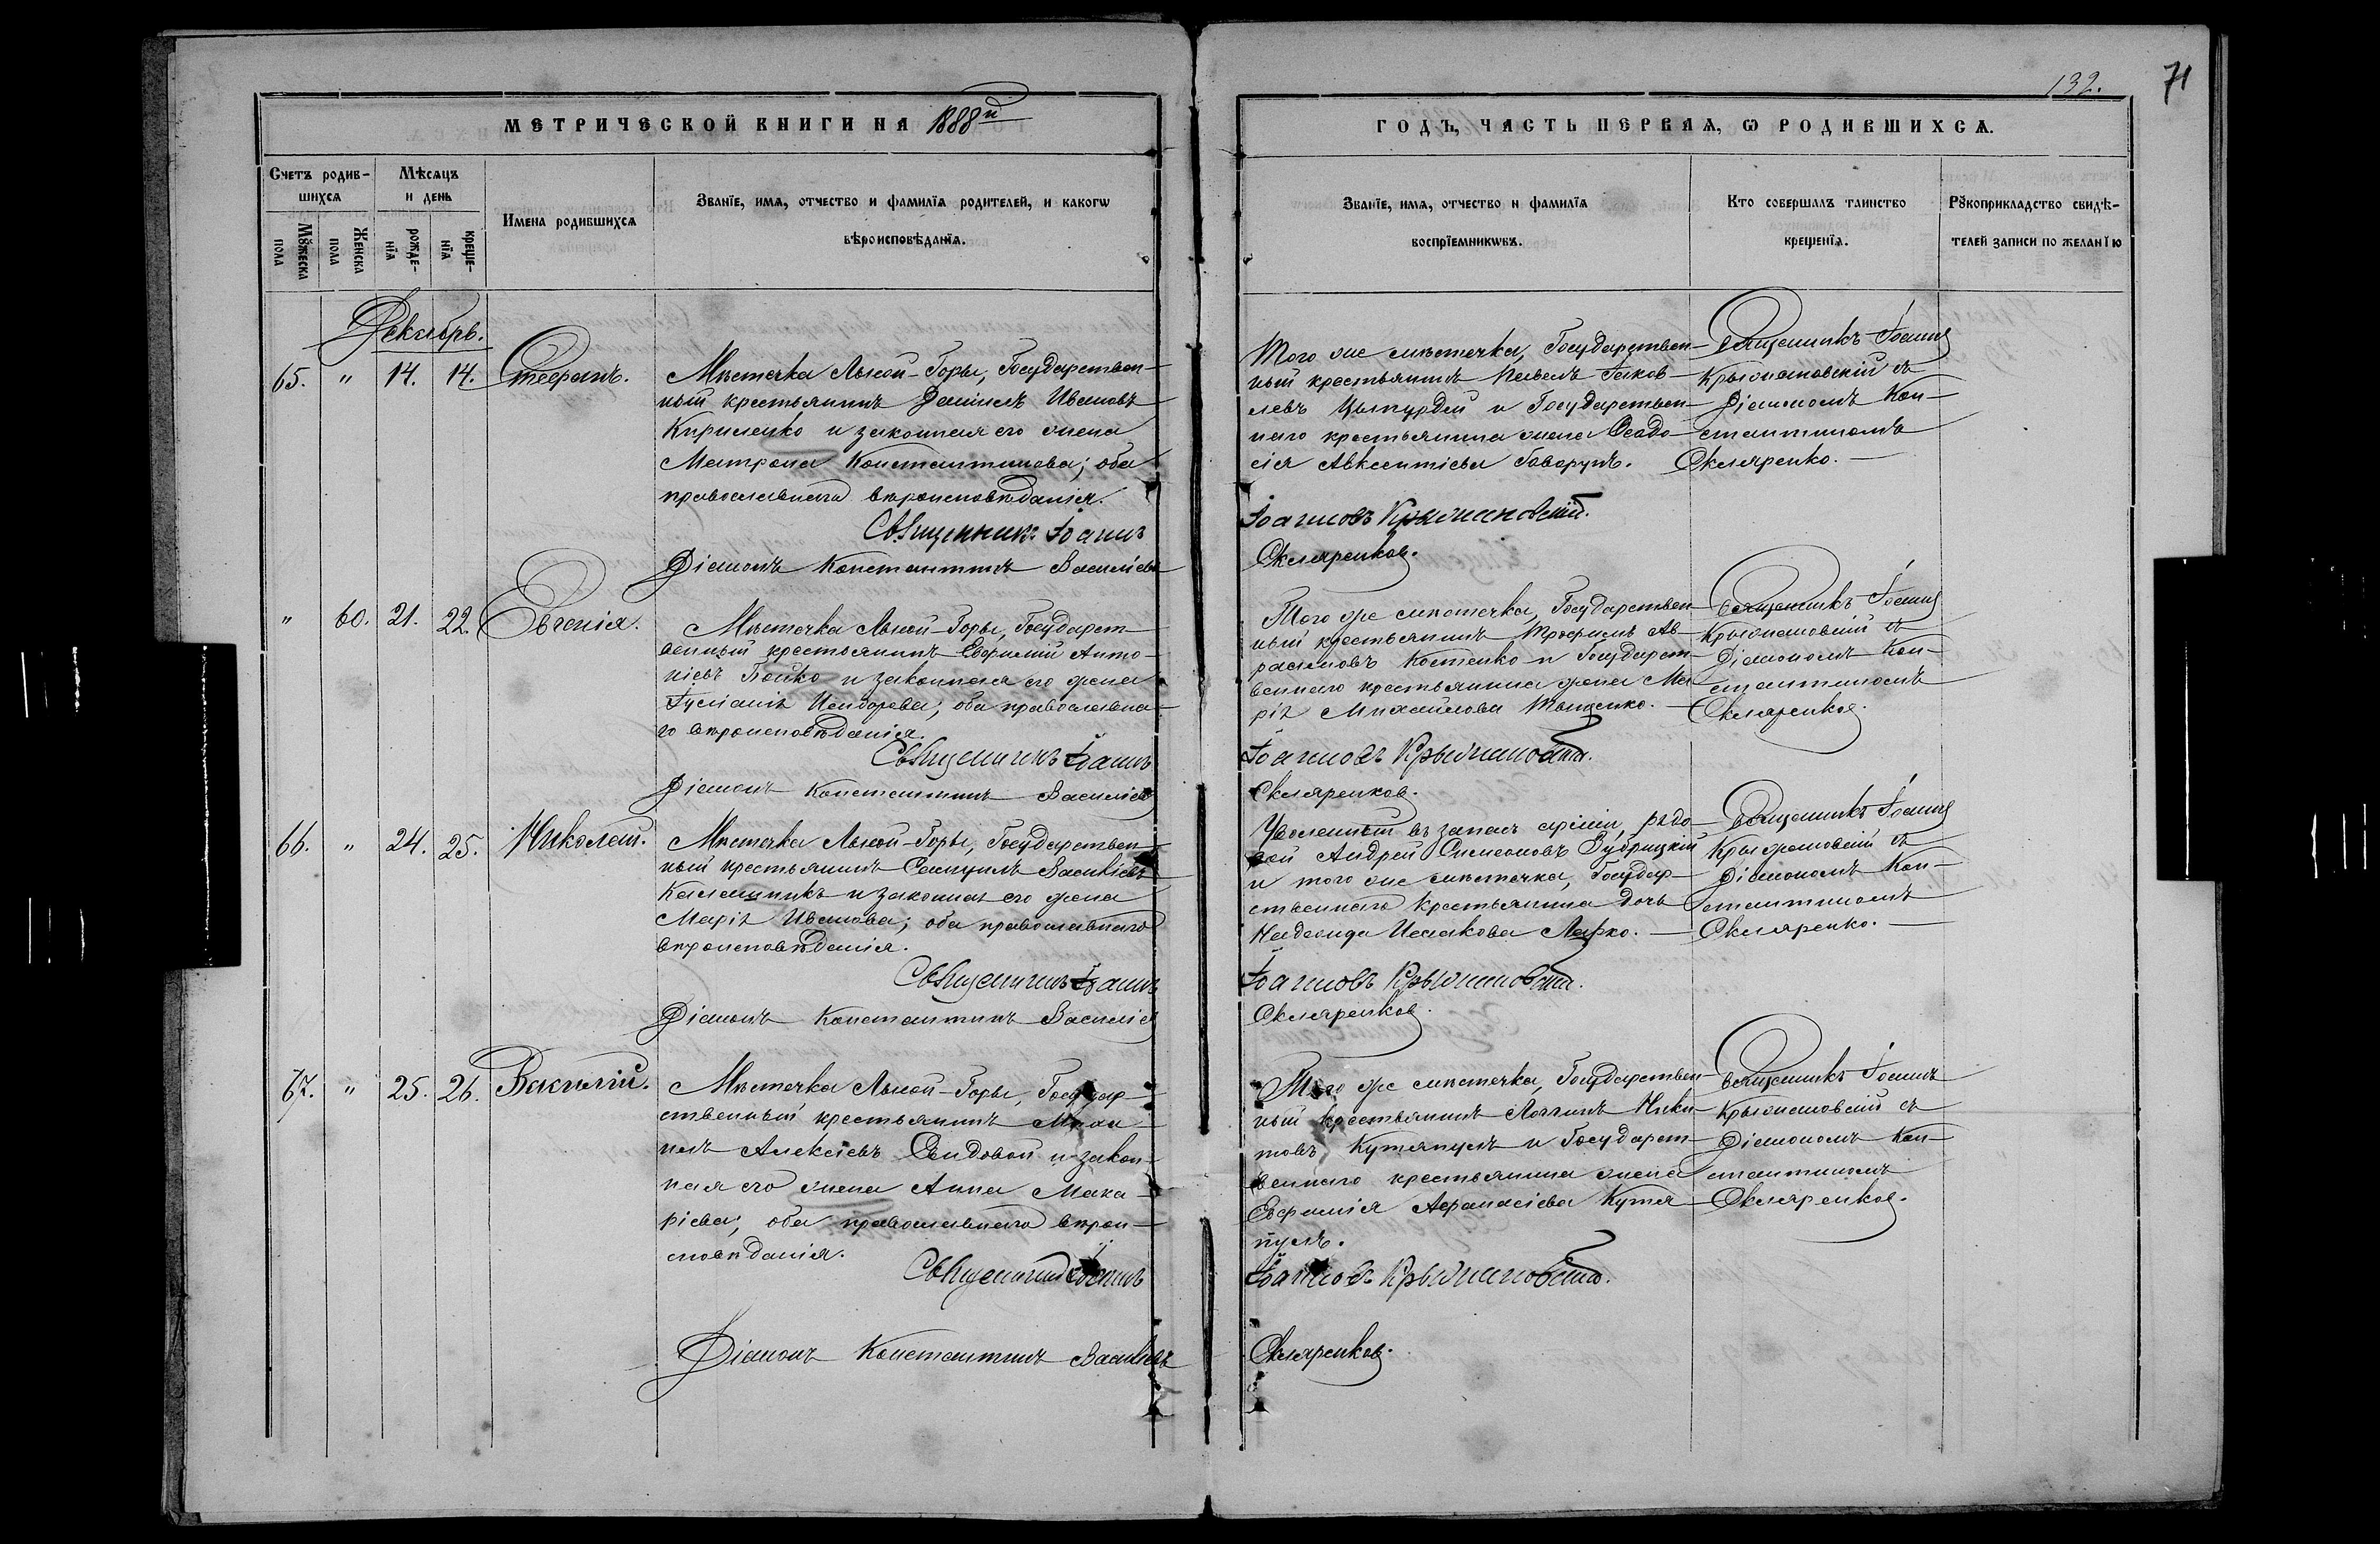 132.
71
МЕТРИЧЕСКОЙ КНИГИ НА 1888й
ГОДЪ, ЧАСТЬ ПЕРВАЯ, Ѡ РОДИВШИХСѦ.
Счетъ родив-
шихсѧ
Мѣсѧцъ
и день
Мꙋжеска
пола
Женска
пола
рожде-
нїѧ
креще-
нїѧ
Имена родившихсѧ
Званїе, имѧ, отчество и фамилїѧ родителей, и какогѡ
вѣроисповѣданїѧ.
Званїе, имѧ, отчество и фамилїѧ
воспрїемникѡвъ.
Кто совершалъ таинство
крещенїѧ.
Рꙋкоприкладство свидѣ-
телей записи по желанїю
Декабрь.
65. " 14. 14. Стефанъ.
Мѣстечка Лысой-Горы, Государствен-
ный крестьянинъ Даніилъ Ивановъ
Кириленко и законная его жена
Матрона Константинова; оба
православнаго вѣроисповѣданія.
Священникъ Іоаннъ
Діаконъ Константинъ Василіевъ
Того же мѣстечка, Государствен-
ный крестьянинъ Павелъ Іаков-
левъ и Государствен-
наго крестьянина жена Ѳеодо-
сія Авксентіева Говорунъ.
Іоанновъ Крыжановскій.
Скляренковъ.
Священникъ Іоаннъ
Крыжановскій съ
Діакономъ Кон-
стантиномъ
Скляренко.
" 60. 21. 22. Евгенія.
Мѣстечка Лысой-Горы, Государст-
венный крестьянинъ Евфимій Анто-
ніевъ Бойко и законная его жена
Іуліанія Исидорова; оба православна-
го вѣроисповѣданія.
Священникъ Іоаннъ
Діаконъ Константинъ Василіевъ
Того же мѣстечка, Государствен-
ный крестьянинъ Трофимъ Ав-
рамовъ Костенко и Государст-
веннаго крестьянина жена Ма-
рія Михайлова
Іоанновъ Крыжановскій.
Скляренковъ.
Священникъ Іоаннъ
Крыжановскій съ
Діакономъ Кон-
стантиномъ
Скляренковъ.
66. " 24. 25. Николай.
Мѣстечка Лысой-Горы, Государствен-
ный крестьянинъ Самуилъ Василіевъ
Калашникъ и законная его жена
Марія Иванова; оба православнаго
вѣроисповѣданія.
Священникъ Іоаннъ
Діаконъ Константинъ Василіевъ
Уволенный въ запасъ арміи, рядо-
вой Андрей Симеоновъ Зубрицкій
и того же мѣстечка, Государ-
ственнаго крестьянина дочь
Надежда Исаакова
Іоанновъ Крыжановскій.
Скляренковъ.
Священникъ Іоаннъ
Крыжановскій съ
Діакономъ Кон-
стантиномъ
Скляренко.
67. " 25. 26. Василій.
Мѣстечка Лысой-Горы, Государ-
ственный крестьянинъ Миха-
илъ Алексіевъ и закон-
ная его жена Анна Мака-
ріева; оба православнаго вѣрои-
сповѣданія.
Священникъ Іоаннъ
Діаконъ Константинъ Василіевъ
Того же мѣстечка, Государствен-
ный крестьянинъ Логгинъ Ники-
товъ Кутяпуль и Государст-
веннаго крестьянина жена
Евфимія Афанасіева Кутя-
пуль.
Іоанновъ Крыжановскій.
Скляренковъ.
Священникъ Іоаннъ
Крыжановскій съ
Діакономъ Кон-
стантиномъ
Скляренковъ.